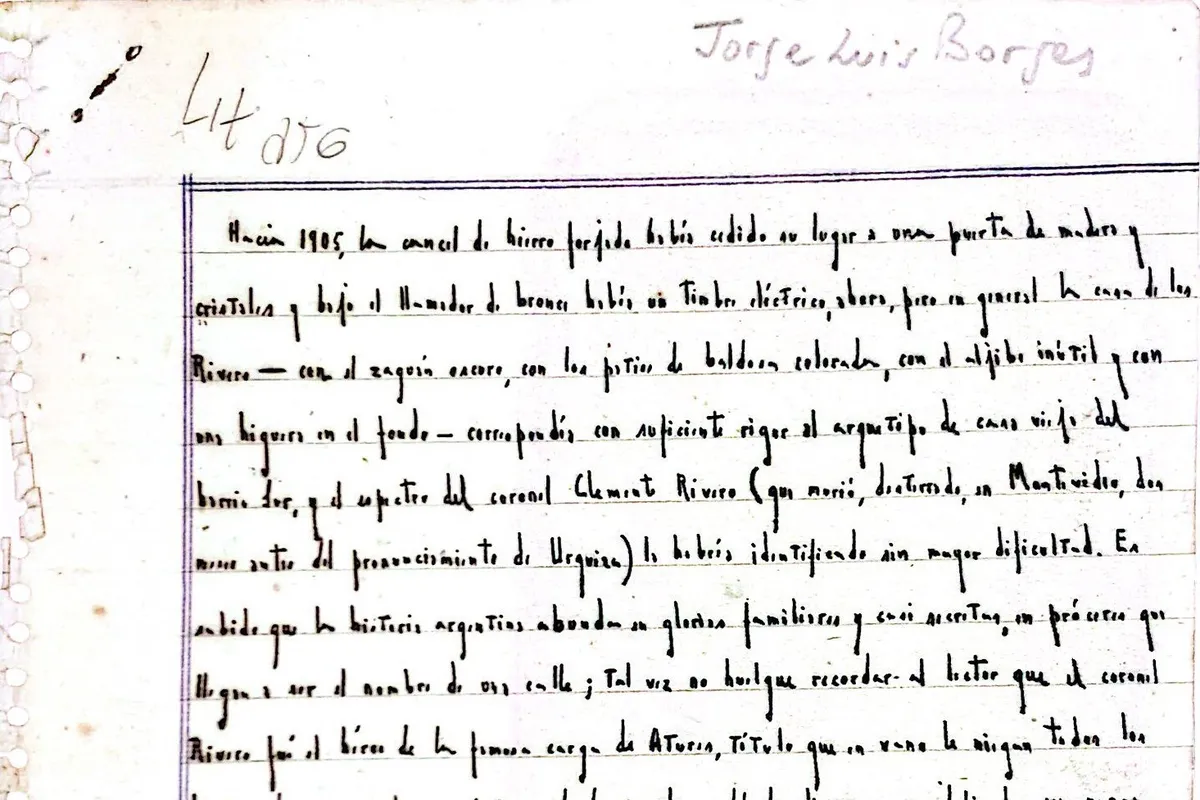 Jorge Luis Borges
Lit 256
Hacia 1905, la cancel de hierro forjado había cedido su lugar a una puerta de madera y
cristales y bajo el llamador de bronce había un timbre eléctrico, ahora, pero en general la casa de los
Rivero — con el zaguán oscuro, con los patios de baldosa colorada, con el aljibe inútil y con
una higuera en el fondo — correspondía con suficiente rigor al arquetipo de casa vieja del
barrio Sur, y el espectro del coronel Clemente Rivero (que murió, desterrado, en Montevideo, dos
meses antes del pronunciamiento de Urquiza) la habría identificado sin mayor dificultad. Es
sabido que la historia argentina abunda en glorias familiares y casi secretas, en próceres que
llegan a ser el nombre de una calle; tal vez no huelgue recordar al lector que el coronel
Rivero fué el héroe de la famosa carga de, título que en vano le niegan todos los